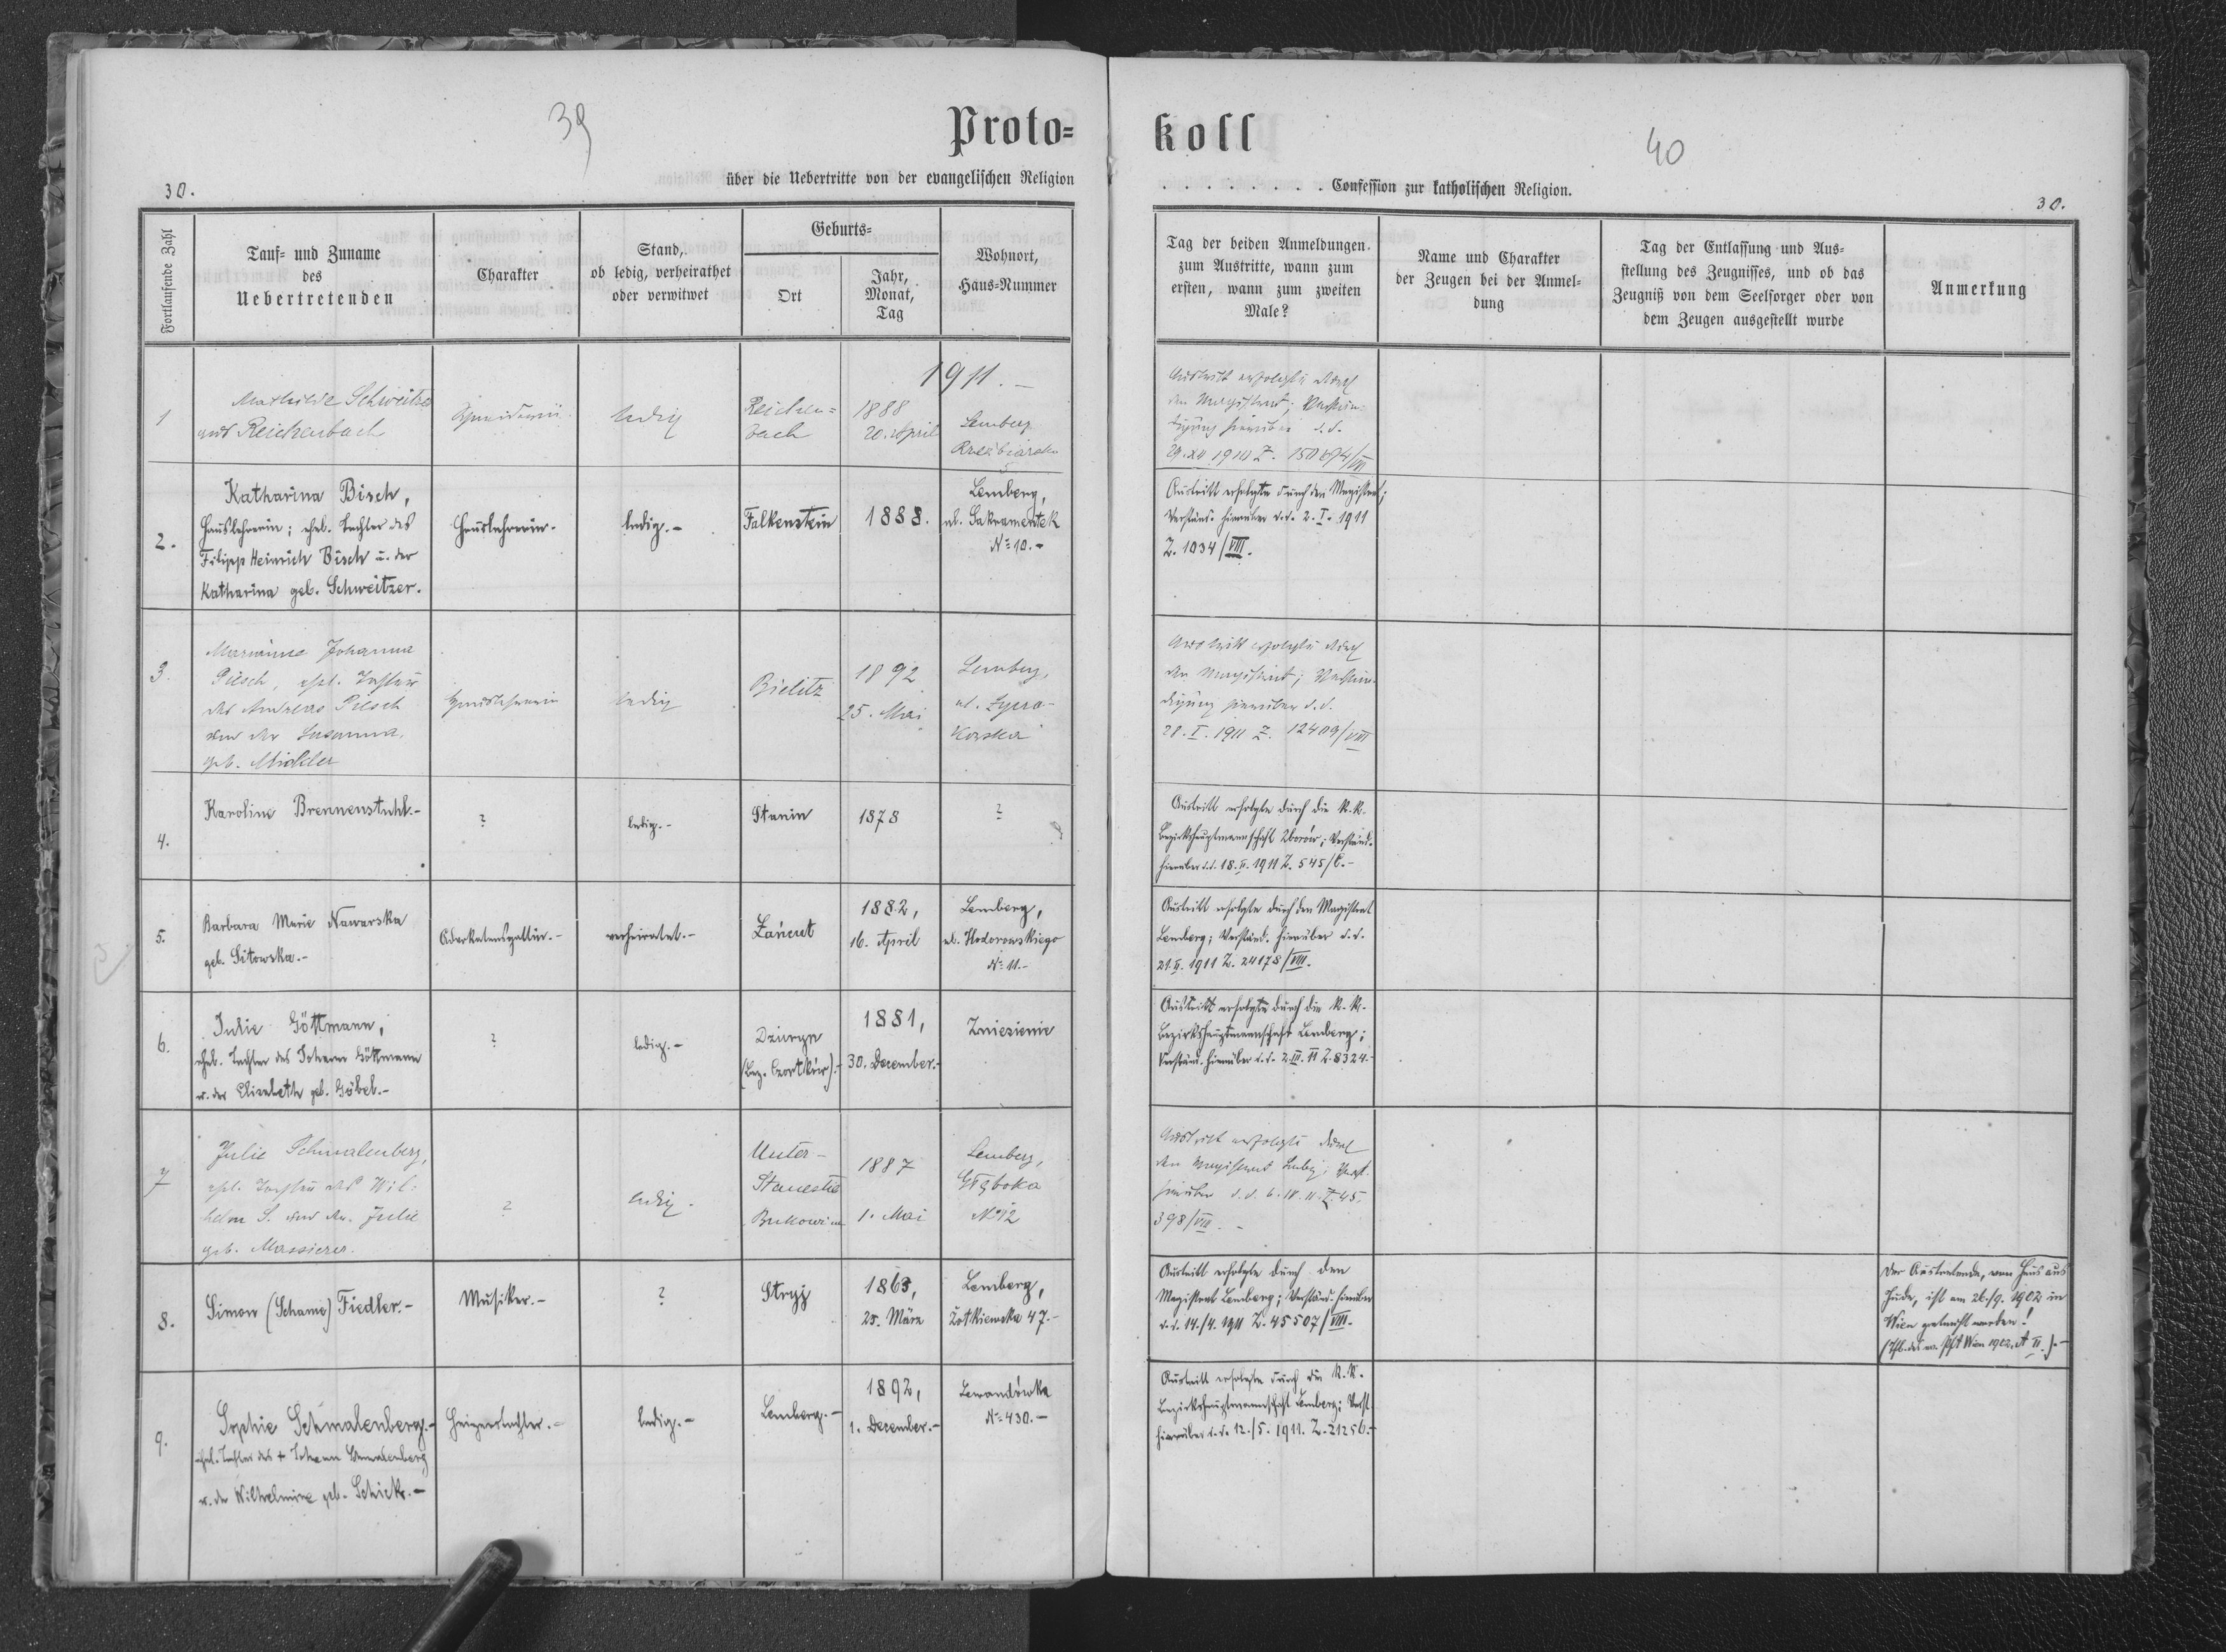 39
Proto=
30.
über die Uebertritte von der evangelischen Religion
Fortlaufende Zahl
Tauf- und Zuname
des
Uebertretenden
Charakter
Stand,
ob ledig, verheirathet
oder verwitwet
Geburts=
Ort
Jahr,
Monat,
Tag
Wohnort,
Haus-Nummer
1911.-
1
Mathilde Schweitzer
aus Reichenbach
ledig
Reichen=
bach
1888
20. April
Lemberg
2.
Katharina Bisch,
Hauslehrerin; ehel. Tochter des
Filipp Heinrich Bisch u. der
Katharina geb. Schweitzer.
Hauslehrerin.
ledig.-
Falkenstein
1888.
Lemberg,
ul. Sakramentek
Nº 10.-
3.
Marianne Johanna
Piesch, ehel. Tochter
des Andreas Piesch
und der Susanna
geb. Michler
ledig
Bielitz
1892
25. Mai
Lemberg,
4.
Karoline Brennenstuhl.-
?
ledig.-
Stanin
1878
?
5.
Barbara Marie Nawarska
geb. Sitowska.-
Advokatensgattin.-
verheiratet.-
Łańcut
1882,
16. April
Lemberg,
ul. Hodorowskiego
Nº 11.-
6.
Julie Göttmann,
ehel. Tochter des Johann Göttmann
u. der Elisabeth geb. Göbel.-
?
ledig.-
Dżuryn
(Bez. Czortków).-
1881,
30. December.-
Zniesienie
7
Julie Schmalenberg,
ehel. Tochter des Wil-
helm S. und der Julie
geb. Massierer.
?
ledig.
Unter-
Stanestie
Bukowina
1887
1. Mai
Lemberg,
Głęboka
Nº 12
8.
Simon (Schame) Fiedler.-
Musiker.-
?
Stryj
1863,
25. März
Lemberg,
Żółkiewska 47.-
9.
Sophie Schmalenberg.-
ehel. Tochter des + Johann Schmalenberg
u. der Wilhelmine geb. Schick.-
Heizerstochter.-
ledig.-
Lemberg.-
1892,
1. December.-
Lewandówka
Nº 430.-
koll
40
. . . . . . . . Confession zur katholischen Religion.
30.
Tag der beiden Anmeldungen
zum Austritte, wann zum
ersten, wann zum zweiten
Male?
Name und Charakter
der Zeugen bei der Anmel-
dung
Tag der Entlassung und Aus-
stellung des Zeugnisses, und ob das
Zeugniß von dem Seelsorger oder von
dem Zeugen ausgestellt wurde
Anmerkung
Austritt erfolgte durch
den Magistrat; Verstän-
digung hierüber d.d.
Austritt erfolgte durch den Magistrat;
Verständ. hierüber d.d. 2. I. 1911
Z. 1034/VIII.
Austritt erfolgte durch
den Magistrat; Verstän-
digung hierüber d.d.
28. I. 1911 Z. 12409/VIII
Austritt erfolgte durch die k.k.
Bezirkshauptmannschaft Zborów; Verständ.
hierüber d.d. 18. II. 1911 Z. 545/
Austritt erfolgte durch den Magistrat
Lemberg; Verständ. hierüber d.d.
21. II. 1911 Z. 24178/VIII.
Austritt erfolgte durch die k.k.
Bezirkshauptmannschaft Lemberg;
Verständ. hierüber d.d. 2. III. 11 Z. 8324.-
Austritt erfolgte durch
den Magistrat Lemberg; Verst.
hierüber d.d. 6. IV. 11. Z. 45.
398/VIII.-
Austritt erfolgte durch den
Magistrat Lemberg; Verständ. hierüber
d.d. 14./4. 1911 Z. 45507/VIII.
Der Austretende, von Haus aus
Jude, ist am 26./9. 1902 in
Wien getauft worden!
Austritt erfolgte durch die k.k.
Bezirkshauptmannschaft Lemberg; Verst.
hierüber d.d. 12./5. 1911. Z. 21256.-